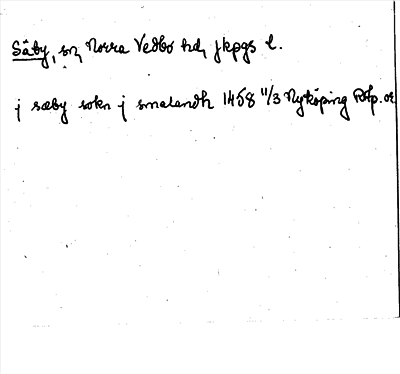 Säby, sn, Norra Vedbo hd, jkpgs l.
j sæby sokn j smalandh 1458 11/3 Nyköping RAp. or